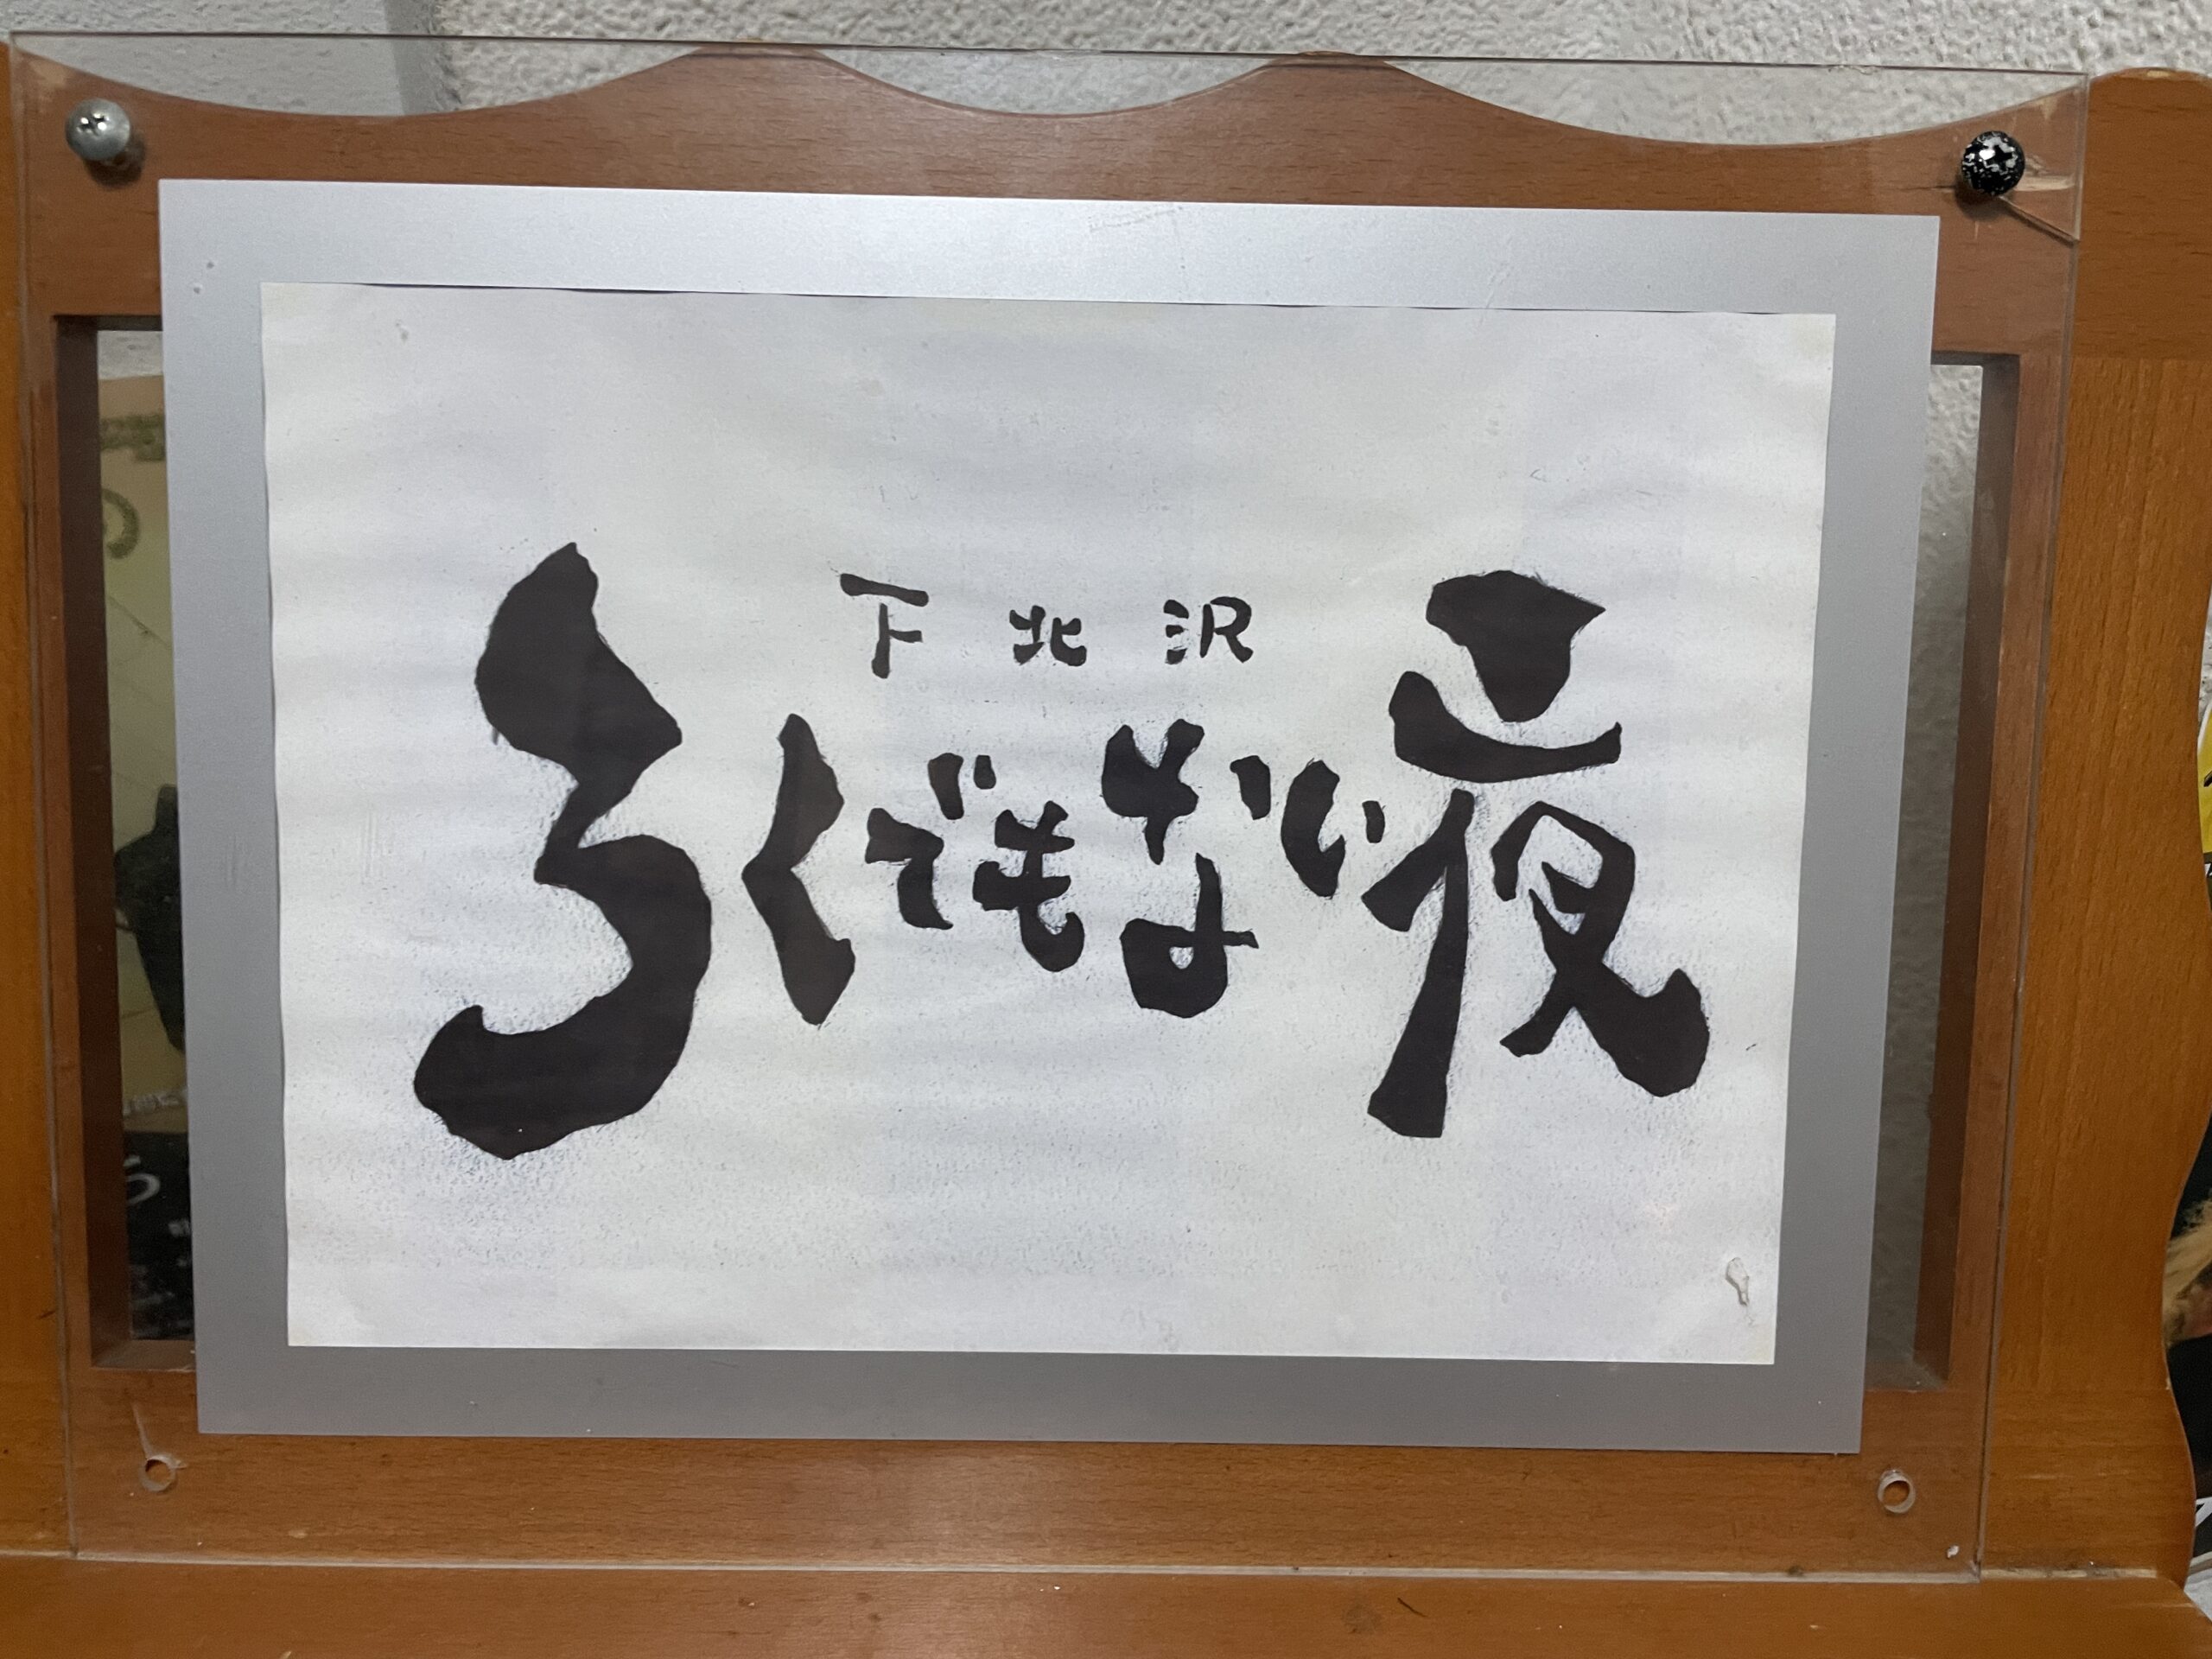 下北沢
ろくでもない夜